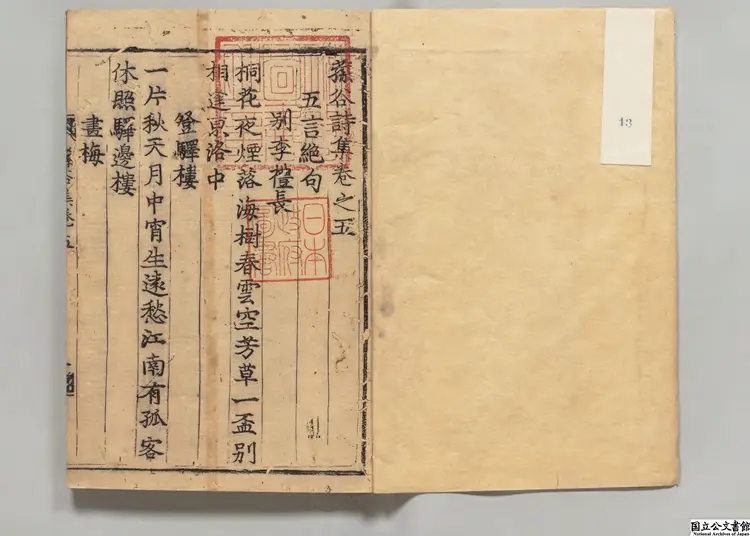 蓀谷詩集卷之五
五言絶句
别李禮長
桐花夜煙落海樹春雲空芳草一盃别
相逢京洛中
登驛樓
一片秋天月中宵生遠愁江南有孤客
休照驛邊樓
畫梅
日本
政府
圖書
13
国立公文書館
National Archives of Japan